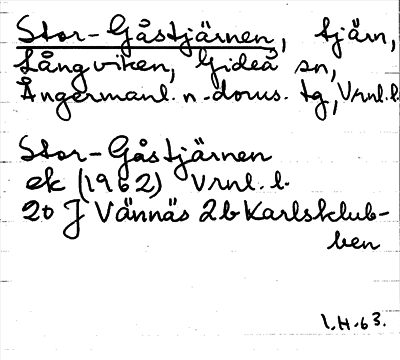 Stor-Gåstjärnen, tjärn,
Långviken, Gideå sn,
Ångermanl. n. doms. tg, Vrnl. l.
Stor-Gåstjärnen
ek (1962) Vrnl. l.
20 J Vännäs 2b Karlsklub-
ben
I.H.63.